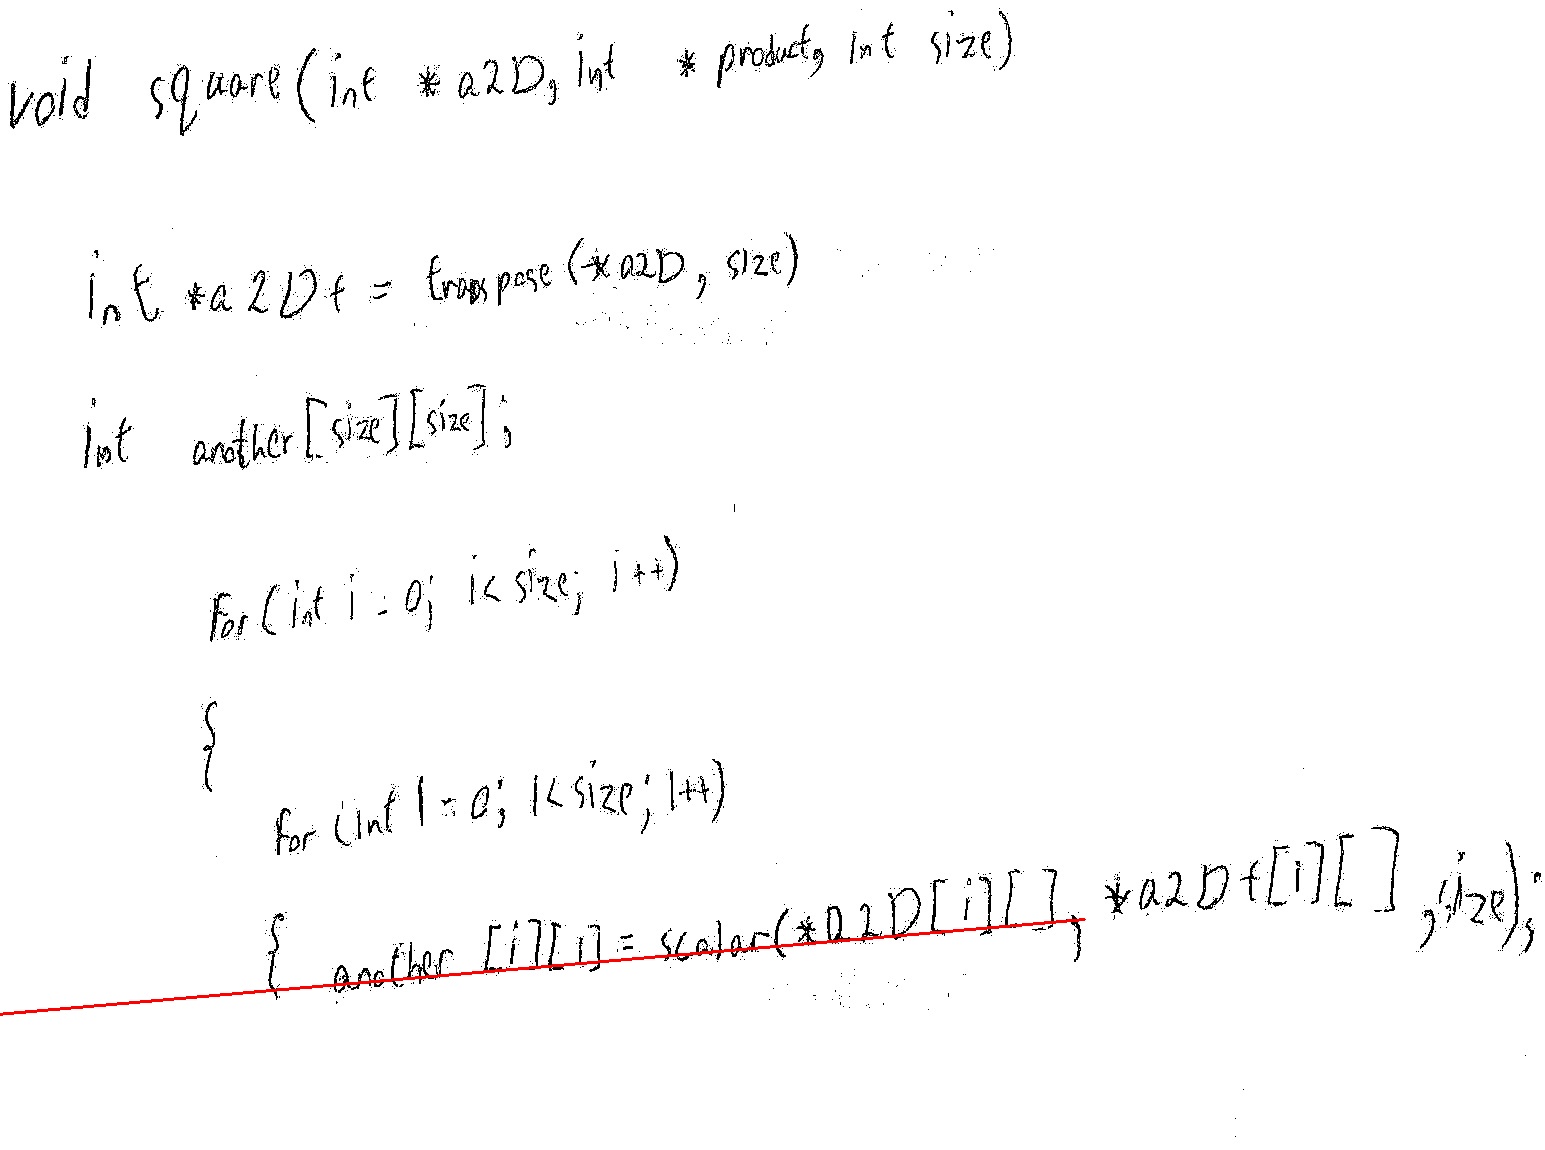 void square(int *a2D, int *product, int size)
int *a2Dt = transpose(*a2D, size)
int another[size][size];
For(int i = 0; i< size; i++)
{
for (int l = 0; l< size; l++)
{ another [i][l] = scalar(*a2D[i][], *a2Dt[l][], size);